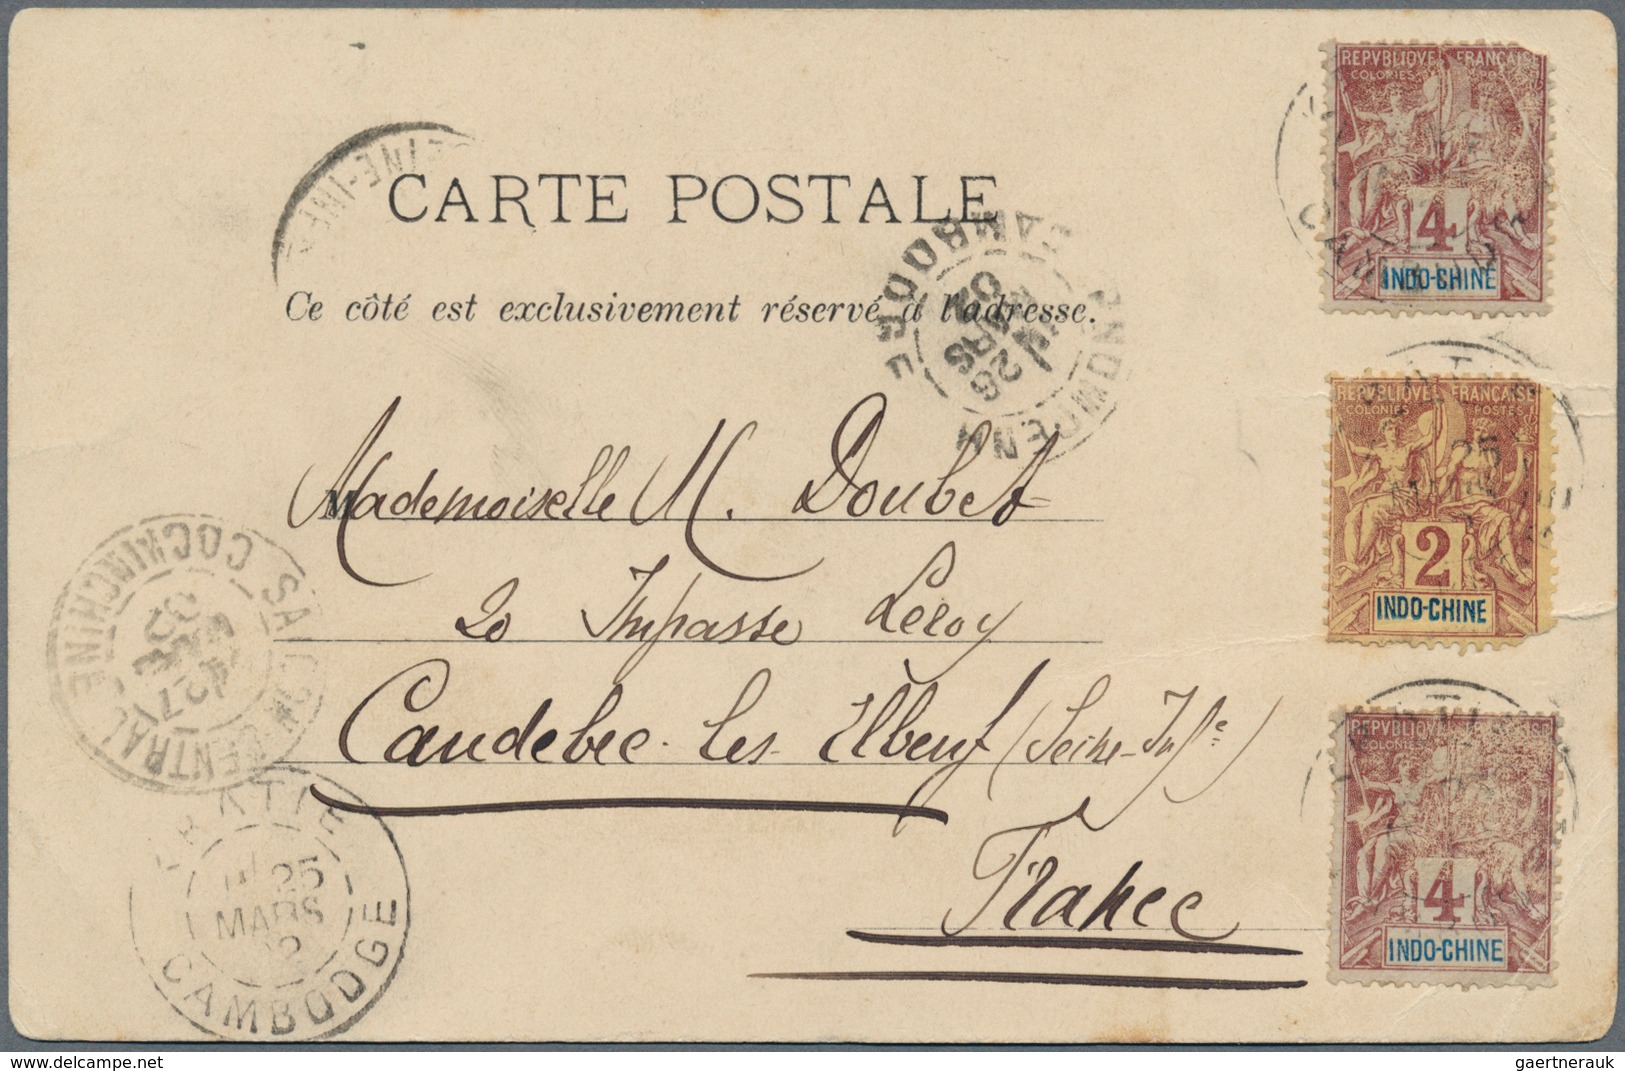 CARTE POSTALE
Ce côté est exclusivement réservé à l'adresse.
Mademoiselle M. Doubet
20 Impasse Leroy
Caudebec-les-Elbeuf (Seine-Infre)
France
REPVBLIQVE FRANÇAISE
COLONIES POSTES
4
INDO-CHINE
REPVBLIQVE FRANÇAISE
COLONIES POSTES
2
INDO-CHINE
25
REPVBLIQVE FRANÇAISE
COLONIES
4
INDO-CHINE
SEINE-INF
PNOMPENH
CAMBODGE
26
MARS
02
SAIGON-CENTRAL
COCHINCHINE
27
MARS
02
KRATIE
25
MARS
02
CAMBODGE
gaertnerauk